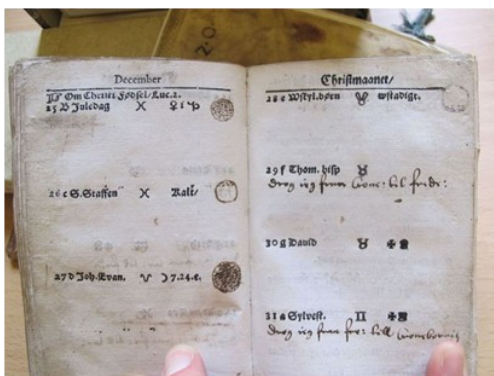 December
Om Christi Fødsel/Luc.2.
25 B Juledag
26 c S. Staffen Kalt/
27 d Joh. Evan. 7.24.e.
Christmaanet/
28 e Wskyl.børn wstadigt.
29 f Thom. bisp
drog ieg fraa
30 g David
31 a Sylvest.
drog ieg fraa